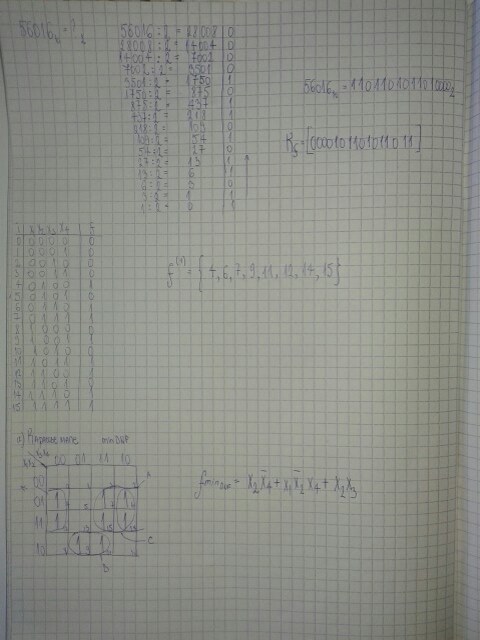 56016₁₀ = ?₂
56016 : 2 = 28008 | 0
28008 : 2 = 14004 | 0
14004 : 2 = 7002 | 0
7002 : 2 = 3501 | 0
3501 : 2 = 1750 | 1
1750 : 2 = 875 | 0
875 : 2 = 437 | 1
437 : 2 = 218 | 1
218 : 2 = 109 | 0
109 : 2 = 54 | 1
54 : 2 = 27 | 0
27 : 2 = 13 | 1
13 : 2 = 6 | 1
6 : 2 = 3 | 0
3 : 2 = 1 | 1
1 : 2 = 0 | 1
56016₁₀ = 1101101011010000₂
[0000101101011011]
i x₁ x₂ x₃ x₄ f
0 0 0 0 0 0
1 0 0 0 1 0
2 0 0 1 0 0
3 0 0 1 1 0
4 0 1 0 0 1
5 0 1 0 1 0
6 0 1 1 0 1
7 0 1 1 1 1
8 1 0 0 0 0
9 1 0 0 1 1
10 1 0 1 0 0
11 1 0 1 1 1
12 1 1 0 0 1
13 1 1 0 1 0
14 1 1 1 0 1
15 1 1 1 1 1
f⁽¹⁾ = {4, 6, 7, 9, 11, 12, 14, 15}
min
x₃x₄
x₁x₂
00 01 11 10
00
01 1 1 1
11 1 1 1
10 1 1
A
C
B
f min = x₂x̄₄ + x₁x̄₂x₄ + x₂x₃